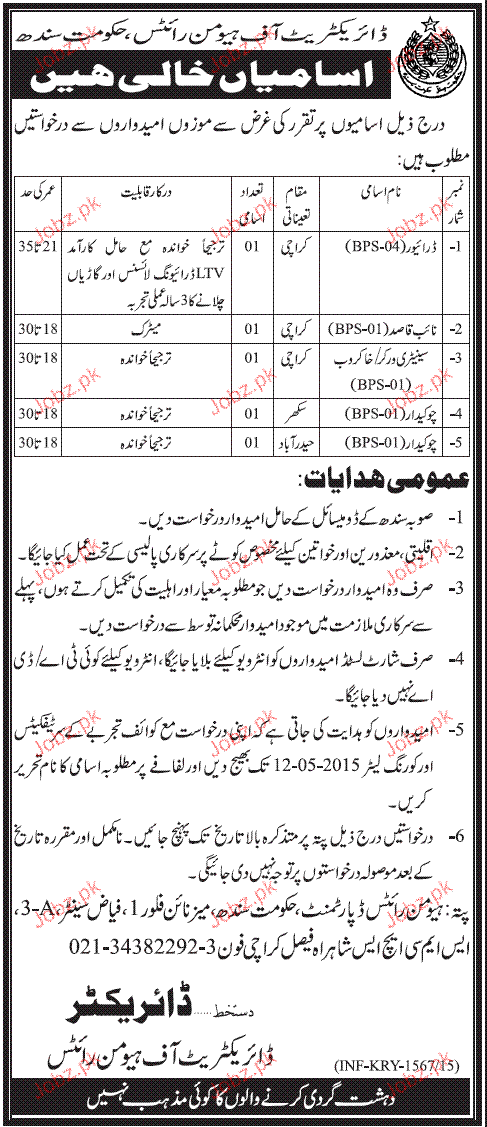 ڈائریکٹریٹ آف ہیومن رائٹس، حکومت سندھ
اسامیاں خالی ہیں
درج ذیل اسامیوں پر تقرر کی غرض سے موزوں امیدواروں سے درخواستیں
مطلوب ہیں:
نمبر شمار نام اسامی مقام تعیناتی تعداد اسامی درکار قابلیت عمر کی حد
1- ڈرائیور (BPS-04) کراچی 01 ترجیحاً خواندہ مع حامل کارآمد 21 تا 35
LTV ڈرائیونگ لائسنس اور گاڑیاں
چلانے کا 3 سالہ عملی تجربہ
2- نائب قاصد (BPS-01) کراچی 01 میٹرک 18 تا 30
3- سینیٹری ورکر/خاکروب کراچی 01 ترجیحاً خواندہ 18 تا 30
(BPS-01)
4- چوکیدار (BPS-01) سکھر 01 ترجیحاً خواندہ 18 تا 30
5- چوکیدار (BPS-01) حیدرآباد 01 ترجیحاً خواندہ 18 تا 30
عمومی ہدایات:
1- صوبہ سندھ کے ڈومیسائل کے حامل امیدوار درخواست دیں۔
2- اقلیتی، معذورین اور خواتین کیلئے مخصوص کوٹے پر سرکاری پالیسی کے تحت عمل کیا جائیگا۔
3- صرف وہ امیدوار درخواست دیں جو مطلوبہ معیار اور اہلیت کی تکمیل کرتے ہوں، پہلے
سے سرکاری ملازمت میں موجود امیدوار محکمانہ توسط سے درخواست دیں۔
4- صرف شارٹ لسٹڈ امیدواروں کو انٹرویو کیلئے بلایا جائیگا، انٹرویو کیلئے کوئی ٹی اے/ڈی
اے نہیں دیا جائیگا۔
5- امیدواروں کو ہدایت کی جاتی ہے کہ اپنی درخواست مع کوائف تجربے کے سرٹیفکیٹس
اور کورنگ لیٹر 12-05-2015 تک بھیج دیں اور لفافے پر مطلوبہ اسامی کا نام تحریر
کریں۔
6- درخواستیں درج ذیل پتہ پر متذکرہ بالا تاریخ تک پہنچ جائیں۔ نامکمل اور مقررہ تاریخ
کے بعد موصولہ درخواستوں پر توجہ نہیں دی جائیگی۔
پتہ: ہیومن رائٹس ڈپارٹمنٹ، حکومت سندھ، میزنائن فلور 1، فیاض سینٹر، 3-A،
ایس ایم سی ایچ ایس شاہراہ فیصل کراچی فون 3-34382292-021
دستخط......ڈائریکٹر
ڈائریکٹریٹ آف ہیومن رائٹس
(INF-KRY-1567/15)
دہشت گردی کرنے والوں کا کوئی مذہب نہیں
Jobz.pk